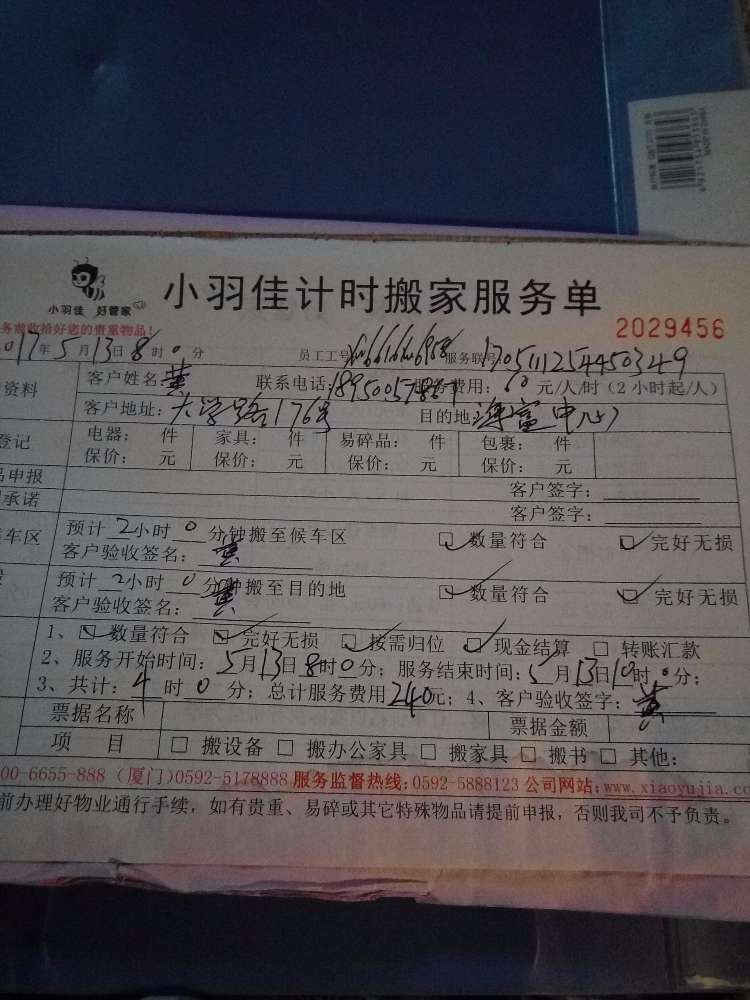 小羽佳 好管家
小羽佳计时搬家服务单
务前收拾好您的贵重物品！
2029456
017年5月13日8时0分 员工工号 服务联号:1705111254450349
资料 客户姓名:黄 联系电话: 服务费用:60元/人/时（2小时起/人）
客户地址:大学路176号 目的地:海富中心
登记 电器: 件 家具: 件 易碎品: 件 包裹: 件
保价: 元 保价: 元 保价: 元 保价: 元
品申报 客户签字:
承诺 客户签字:
车区 预计2小时0分钟搬至候车区 数量符合 完好无损
客户验收签名:黄
预计2小时0分钟搬至目的地 数量符合 完好无损
客户验收签名:黄
1、数量符合 完好无损 按需归位 现金结算 转账汇款
2、服务开始时间:5月13日8时0分；服务结束时间:5月13日10时0分；
3、共计:4时0分；总计服务费用240元；4、客户验收签字:黄
票据名称 票据金额
项 目 搬设备 搬办公家具 搬家具 搬书 其他:
00-6655-888（厦门）0592-5178888 服务监督热线:0592-5888123 公司网站:www.xiaoyujia.co
前办理好物业通行手续，如有贵重、易碎或其它特殊物品请提前申报，否则我司不予负责。